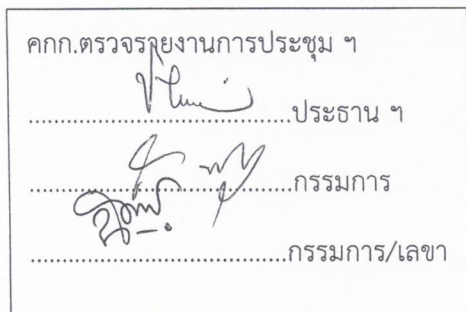 คกก.ตรวจรายงานการประชุม ฯ
......................................ประธาน ฯ
......................................กรรมการ
.....................................กรรมการ/เลขา